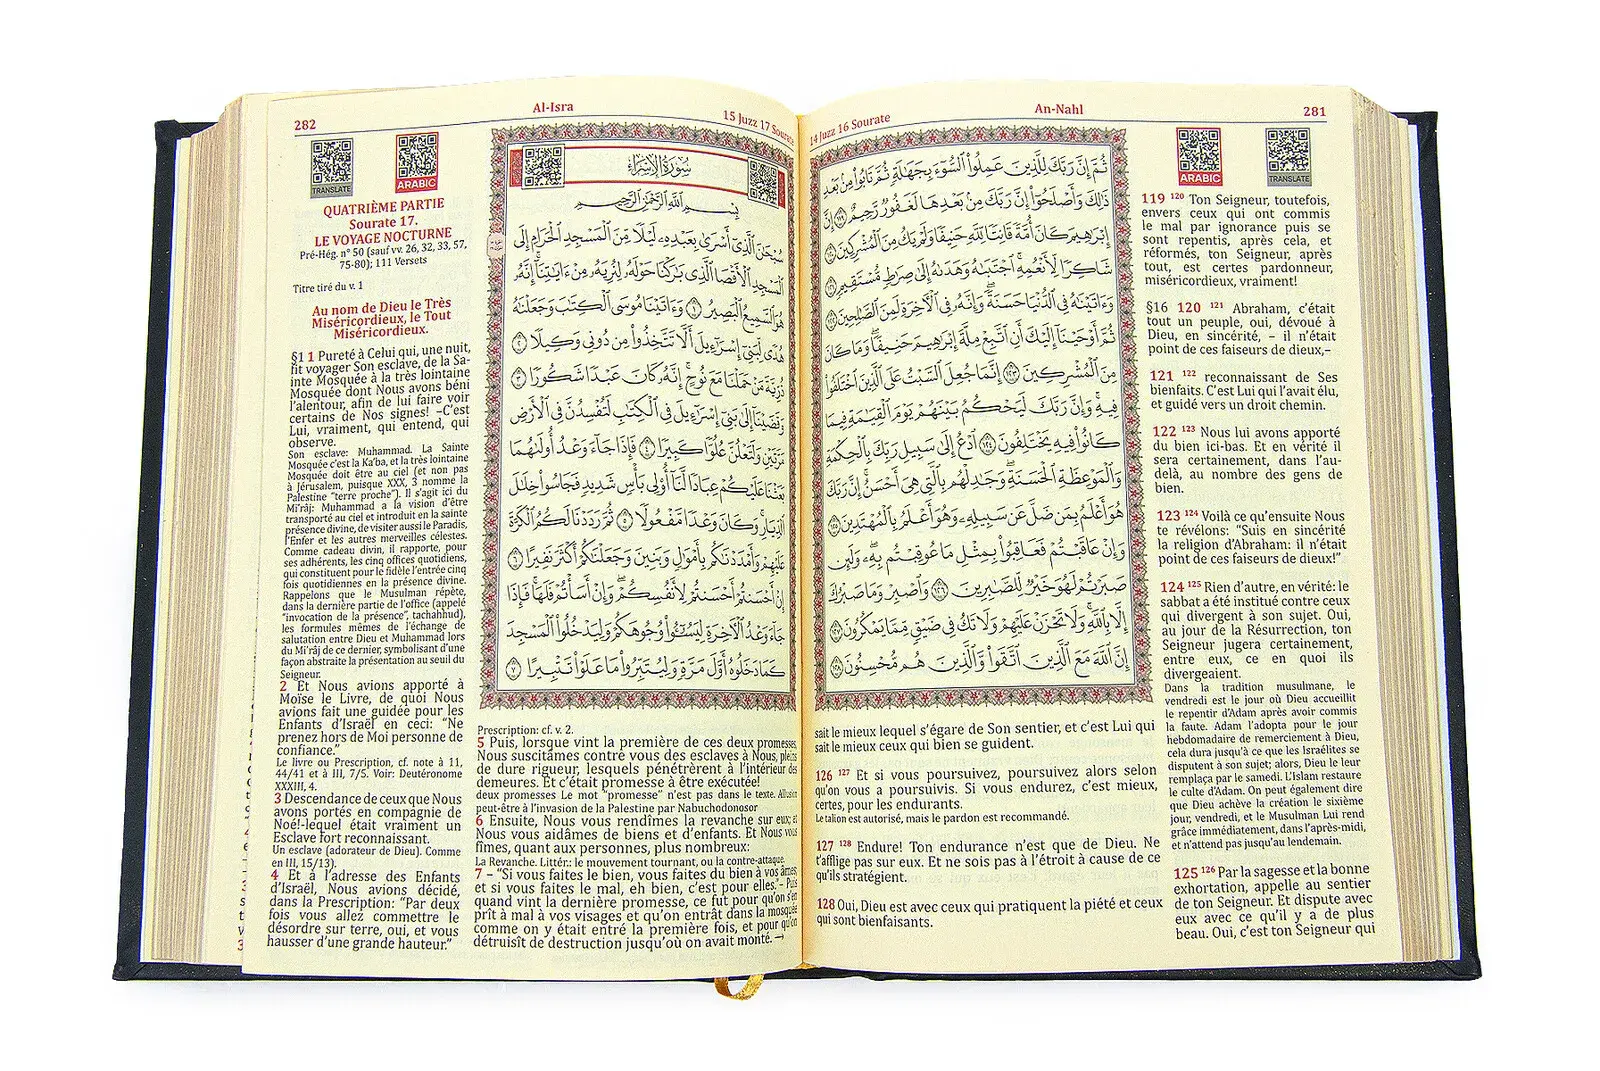 An-Nahl
281
14 Juzz 16 Sourate
ARABIC
TRANSLATE
ثُمَّ إِنَّ رَبَّكَ لِلَّذِينَ عَمِلُوا۟ ٱلسُّوٓءَ بِجَهَٰلَةٍ ثُمَّ تَابُوا۟ مِنۢ بَعْدِ
ذَٰلِكَ وَأَصْلَحُوٓا۟ إِنَّ رَبَّكَ مِنۢ بَعْدِهَا لَغَفُورٌ رَّحِيمٌ ١١٩ إِنَّ
إِبْرَٰهِيمَ كَانَ أُمَّةً قَانِتًا لِّلَّهِ حَنِيفًا وَلَمْ يَكُ مِنَ ٱلْمُشْرِكِينَ ١٢٠
شَاكِرًا لِّأَنْعُمِهِ ۚ ٱجْتَبَىٰهُ وَهَدَىٰهُ إِلَىٰ صِرَٰطٍ مُّسْتَقِيمٍ ١٢١
وَءَاتَيْنَٰهُ فِى ٱلدُّنْيَا حَسَنَةً ۖ وَإِنَّهُۥ فِى ٱلْءَاخِرَةِ لَمِنَ ٱلصَّٰلِحِينَ ١٢٢
ثُمَّ أَوْحَيْنَآ إِلَيْكَ أَنِ ٱتَّبِعْ مِلَّةَ إِبْرَٰهِيمَ حَنِيفًا ۖ وَمَا كَانَ
مِنَ ٱلْمُشْرِكِينَ ١٢٣ إِنَّمَا جُعِلَ ٱلسَّبْتُ عَلَى ٱلَّذِينَ ٱخْتَلَفُوا۟
فِيهِ ۚ وَإِنَّ رَبَّكَ لَيَحْكُمُ بَيْنَهُمْ يَوْمَ ٱلْقِيَٰمَةِ فِيمَا
كَانُوا۟ فِيهِ يَخْتَلِفُونَ ١٢٤ ٱدْعُ إِلَىٰ سَبِيلِ رَبِّكَ بِٱلْحِكْمَةِ
وَٱلْمَوْعِظَةِ ٱلْحَسَنَةِ ۖ وَجَٰدِلْهُم بِٱلَّتِى هِىَ أَحْسَنُ ۚ إِنَّ رَبَّكَ
هُوَ أَعْلَمُ بِمَن ضَلَّ عَن سَبِيلِهِۦ ۖ وَهُوَ أَعْلَمُ بِٱلْمُهْتَدِينَ ١٢٥
وَإِنْ عَاقَبْتُمْ فَعَاقِبُوا۟ بِمِثْلِ مَا عُوقِبْتُم بِهِۦ ۖ وَلَئِن
صَبَرْتُمْ لَهُوَ خَيْرٌ لِّلصَّٰبِرِينَ ١٢٦ وَٱصْبِرْ وَمَا صَبْرُكَ
إِلَّا بِٱللَّهِ ۚ وَلَا تَحْزَنْ عَلَيْهِمْ وَلَا تَكُ فِى ضَيْقٍ مِّمَّا يَمْكُرُونَ ١٢٧
إِنَّ ٱللَّهَ مَعَ ٱلَّذِينَ ٱتَّقَوا۟ وَّٱلَّذِينَ هُم مُّحْسِنُونَ ١٢٨
119 120 Ton Seigneur, toutefois,
envers ceux qui ont commis
le mal par ignorance puis se
sont repentis, après cela, et
réformés, ton Seigneur, après
tout, est certes pardonneur,
miséricordieux, vraiment!
§16 120 121 Abraham, c'était
tout un peuple, oui, dévoué à
Dieu, en sincérité, – il n'était
point de ces faiseurs de dieux,–
121 122 reconnaissant de Ses
bienfaits. C'est Lui qui l'avait élu,
et guidé vers un droit chemin.
122 123 Nous lui avons apporté
du bien ici-bas. Et en vérité il
sera certainement, dans l'au-
delà, au nombre des gens de
bien.
123 124 Voilà ce qu'ensuite Nous
te révélons: "Suis en sincérité
la religion d'Abraham: il n'était
point de ces faiseurs de dieux!"
124 125 Rien d'autre, en vérité: le
sabbat a été institué contre ceux
qui divergent à son sujet. Oui,
au jour de la Résurrection, ton
Seigneur jugera certainement,
entre eux, ce en quoi ils
divergeaient.
Dans la tradition musulmane, le
vendredi est le jour où Dieu accueillit
le repentir d'Adam après avoir commis
la faute. Adam l'adopta pour le jour
hebdomadaire de remerciement à Dieu,
cela dura jusqu'à ce que les Israélites se
disputent à son sujet; alors, Dieu le leur
remplaça par le samedi. L'Islam restaure
le culte d'Adam. On peut également dire
que Dieu achève la création le sixième
jour, vendredi, et le Musulman Lui rend
grâce immédiatement, dans l'après-midi,
et n'attend pas jusqu'au lendemain.
125 126 Par la sagesse et la bonne
exhortation, appelle au sentier
de ton Seigneur. Et dispute avec
eux avec ce qu'il y a de plus
beau. Oui, c'est ton Seigneur qui
sait le mieux lequel s'égare de Son sentier, et c'est Lui qui
sait le mieux ceux qui bien se guident.
126 127 Et si vous poursuivez, poursuivez alors selon
qu'on vous a poursuivis. Si vous endurez, c'est mieux,
certes, pour les endurants.
Le talion est autorisé, mais le pardon est recommandé.
127 128 Endure! Ton endurance n'est que de Dieu. Ne
t'afflige pas sur eux. Et ne sois pas à l'étroit à cause de ce
qu'ils stratégient.
128 Oui, Dieu est avec ceux qui pratiquent la piété et ceux
qui sont bienfaisants.
282
Al-Isra
15 Juzz 17 Sourate
TRANSLATE
ARABIC
سُورَةُ الإِسْرَاءِ
بِسْمِ ٱللَّهِ ٱلرَّحْمَٰنِ ٱلرَّحِيمِ
سُبْحَٰنَ ٱلَّذِىٓ أَسْرَىٰ بِعَبْدِهِۦ لَيْلًا مِّنَ ٱلْمَسْجِدِ ٱلْحَرَامِ إِلَى
ٱلْمَسْجِدِ ٱلْأَقْصَا ٱلَّذِى بَٰرَكْنَا حَوْلَهُۥ لِنُرِيَهُۥ مِنْ ءَايَٰتِنَآ ۚ إِنَّهُۥ
هُوَ ٱلسَّمِيعُ ٱلْبَصِيرُ ١ وَءَاتَيْنَا مُوسَى ٱلْكِتَٰبَ وَجَعَلْنَٰهُ
هُدًى لِّبَنِىٓ إِسْرَٰٓءِيلَ أَلَّا تَتَّخِذُوا۟ مِن دُونِى وَكِيلًا ٢
ذُرِّيَّةَ مَنْ حَمَلْنَا مَعَ نُوحٍ ۚ إِنَّهُۥ كَانَ عَبْدًا شَكُورًا ٣
وَقَضَيْنَآ إِلَىٰ بَنِىٓ إِسْرَٰٓءِيلَ فِى ٱلْكِتَٰبِ لَتُفْسِدُنَّ فِى ٱلْأَرْضِ
مَرَّتَيْنِ وَلَتَعْلُنَّ عُلُوًّا كَبِيرًا ٤ فَإِذَا جَآءَ وَعْدُ أُولَىٰهُمَا
بَعَثْنَا عَلَيْكُمْ عِبَادًا لَّنَآ أُو۟لِى بَأْسٍ شَدِيدٍ فَجَاسُوا۟ خِلَٰلَ
ٱلدِّيَارِ ۚ وَكَانَ وَعْدًا مَّفْعُولًا ٥ ثُمَّ رَدَدْنَا لَكُمُ ٱلْكَرَّةَ
عَلَيْهِمْ وَأَمْدَدْنَٰكُم بِأَمْوَٰلٍ وَبَنِينَ وَجَعَلْنَٰكُمْ أَكْثَرَ نَفِيرًا ٦
إِنْ أَحْسَنتُمْ أَحْسَنتُمْ لِأَنفُسِكُمْ ۖ وَإِنْ أَسَأْتُمْ فَلَهَا ۚ فَإِذَا
جَآءَ وَعْدُ ٱلْءَاخِرَةِ لِيَسُۥٓـُٔوا۟ وُجُوهَكُمْ وَلِيَدْخُلُوا۟ ٱلْمَسْجِدَ
كَمَا دَخَلُوهُ أَوَّلَ مَرَّةٍ وَلِيُتَبِّرُوا۟ مَا عَلَوْا۟ تَتْبِيرًا ٧
QUATRIÈME PARTIE
Sourate 17.
LE VOYAGE NOCTURNE
Pré-Hég. n° 50 (sauf vv. 26, 32, 33, 57,
75-80); 111 Versets
Titre tiré du v. 1
Au nom de Dieu le Très
Miséricordieux, le Tout
Miséricordieux.
§1 1 Pureté à Celui qui, une nuit,
fit voyager Son esclave, de la Sa-
inte Mosquée à la très lointaine
Mosquée dont Nous avons béni
l'alentour, afin de lui faire voir
certains de Nos signes! –C'est
Lui, vraiment, qui entend, qui
observe.
Son esclave: Muhammad. La Sainte
Mosquée c'est la Ka'ba, et la très lointaine
Mosquée doit être au ciel (et non pas
à Jérusalem, puisque XXX, 3 nomme la
Palestine "terre proche"). Il s'agit ici du
Mi'râj: Muhammad a la vision d'être
transporté au ciel et introduit en la sainte
présence divine, de visiter aussi le Paradis,
l'Enfer et les autres merveilles célestes.
Comme cadeau divin, il rapporte, pour
ses adhérents, les cinq offices quotidiens,
qui constituent pour le fidèle l'entrée cinq
fois quotidiennes en la présence divine.
Rappelons que le Musulman répète,
dans la dernière partie de l'office (appelé
"invocation de la présence", tachahhud),
les formules mêmes de l'échange de
salutation entre Dieu et Muhammad lors
du Mi'râj de ce dernier, symbolisant d'une
façon abstraite la présentation au seuil du
Seigneur.
2 Et Nous avions apporté à
Moïse le Livre, de quoi Nous
avions fait une guidée pour les
Enfants d'Israël en ceci: "Ne
prenez hors de Moi personne de
confiance."
Le livre ou Prescription, cf. note à 11,
44/41 et à III, 7/5. Voir: Deutéronome
XXXIII, 4.
3 Descendance de ceux que Nous
avons portés en compagnie de
Noé!-lequel était vraiment un
Esclave fort reconnaissant.
Un esclave (adorateur de Dieu). Comme
en III, 15/13).
4 Et à l'adresse des Enfants
d'Israël, Nous avions décidé,
dans la Prescription: "Par deux
fois vous allez commettre le
désordre sur terre, oui, et vous
hausser d'une grande hauteur."
Prescription: cf. v. 2.
5 Puis, lorsque vint la première de ces deux promesses,
Nous suscitâmes contre vous des esclaves à Nous, pleins
de dure rigueur, lesquels pénétrèrent à l'intérieur des
demeures. Et c'était promesse à être exécutée!
deux promesses Le mot "promesse" n'est pas dans le texte. Allusion
peut-être à l'invasion de la Palestine par Nabuchodonosor
6 Ensuite, Nous vous rendîmes la revanche sur eux; et
Nous vous aidâmes de biens et d'enfants. Et Nous vous
fîmes, quant aux personnes, plus nombreux:
La Revanche. Littér.: le mouvement tournant, ou la contre-attaque.
7 – "Si vous faites le bien, vous faites du bien à vos âmes;
et si vous faites le mal, eh bien, c'est pour elles."- Puis
quand vint la dernière promesse, ce fut pour qu'on s'en
prît à mal à vos visages et qu'on entrât dans la mosquée
comme on y était entré la première fois, et pour qu'on
détruisît de destruction jusqu'où on avait monté. →